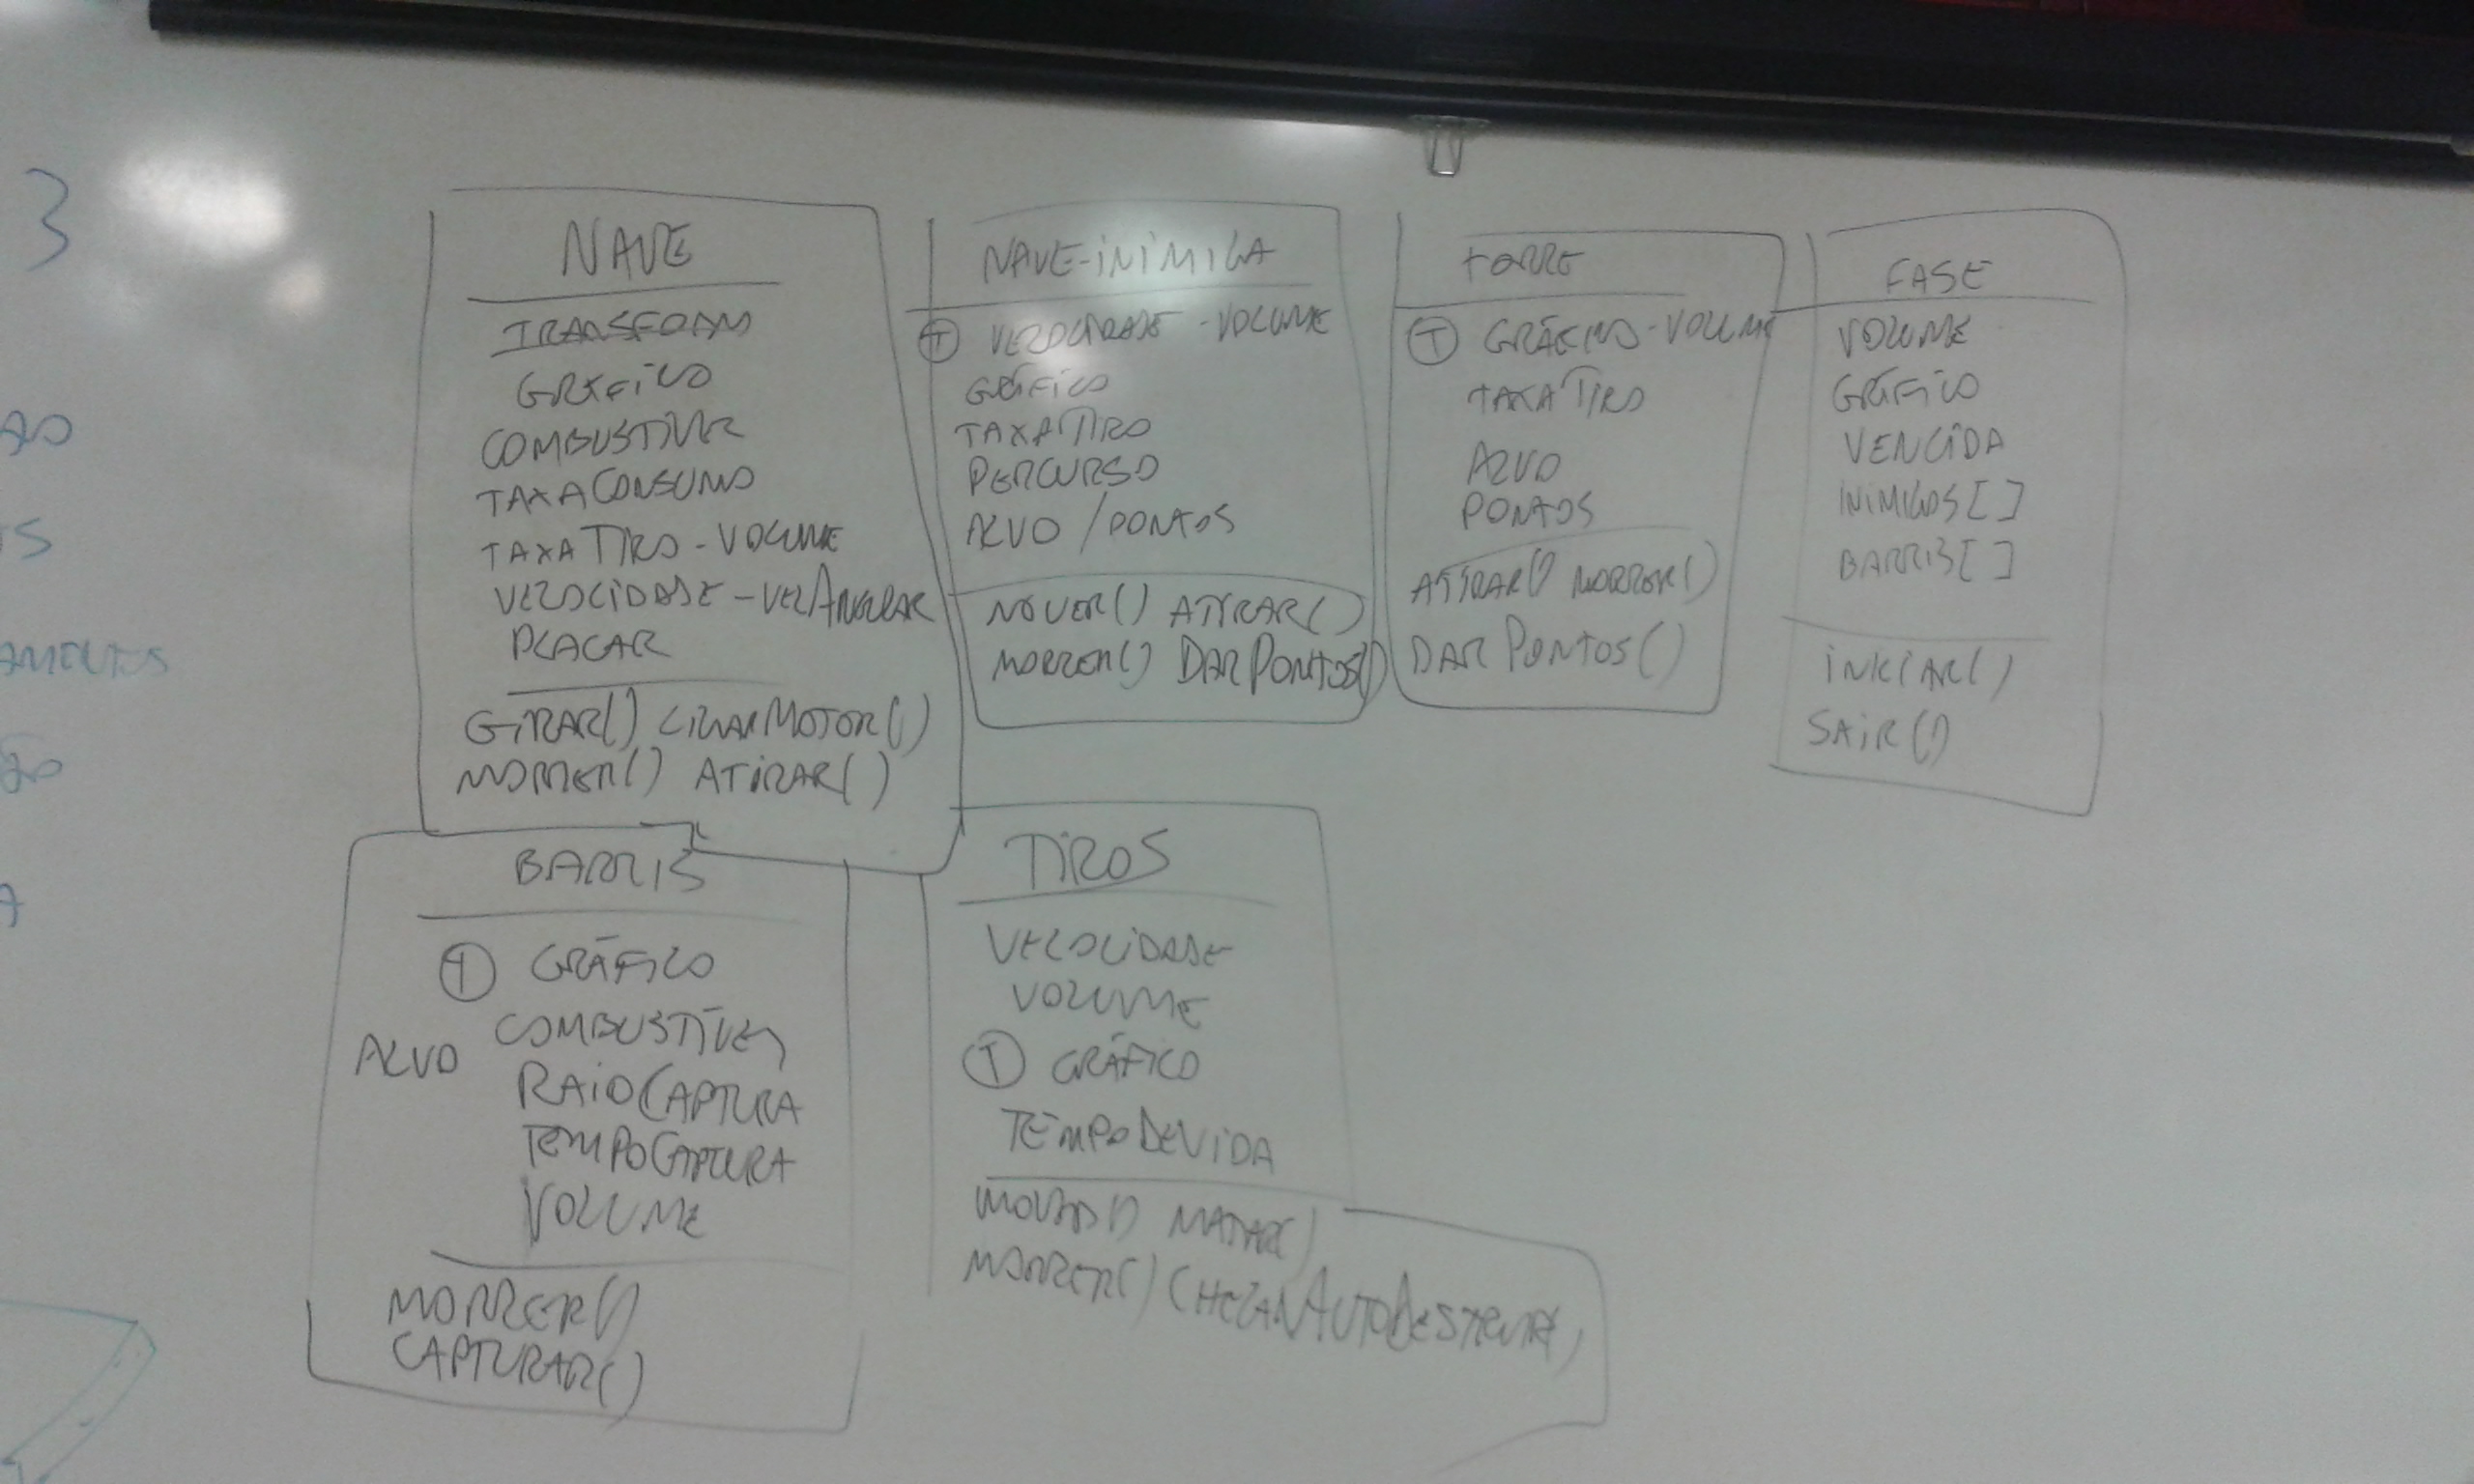 3
NAVE
TRANSFORM
GRÁFICO
COMBUSTÍVEL
TAXACONSUMO
TAXATIRO - VOLUME
VELOCIDADE - VELANGULAR
PLACAR
GIRAR() LIGARMOTOR()
MORRER() ATIRAR()
NAVE-INIMIGA
T VELOCIDADE - VOLUME
GRÁFICO
TAXATIRO
PERCURSO
ALVO / PONTOS
MOVER() ATIRAR()
MORRER() DARPONTOS()
TORRE
T GRÁFICO - VOLUME
TAXATIRO
ALVO
PONTOS
ATIRAR() MORRER()
DAR PONTOS()
FASE
VOLUME
GRÁFICO
VENCIDA
INIMIGOS[]
BARRIS[]
INICIAR()
SAIR()
BARRIS
T GRÁFICO
COMBUSTÍVEL
ALVO
RAIOCAPTURA
TEMPOCAPTURA
VOLUME
MORRER()
CAPTURAR()
TIROS
VELOCIDADE
VOLUME
T GRÁFICO
TEMPODEVIDA
MATAR()
MORRER()